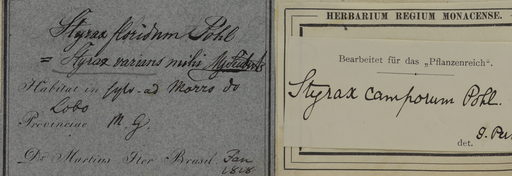 Styrax floridum Pohl
= Styrax varians mihi
Habitat in sylv. ad Morro do
Lobo
Provinciae M. G.
Dr. Martius Iter Brasil. Jan
1818
HERBARIUM REGIUM MONACENSE.
Bearbeitet für das „Pflanzenreich".
Styrax camporum Pohl.
det. J. Per